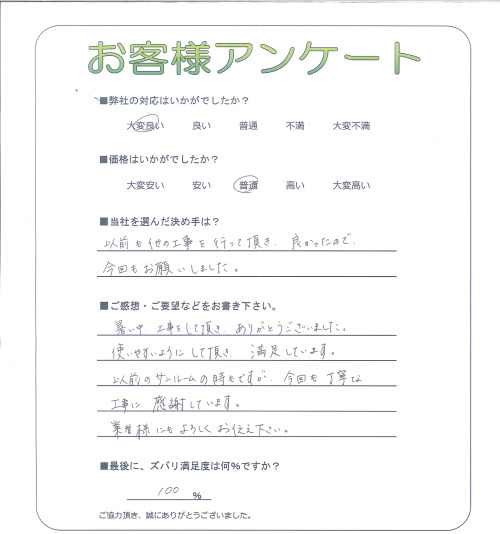 お客様アンケート
■弊社の対応はいかがでしたか？
大変良い 良い 普通 不満 大変不満
■価格はいかがでしたか？
大変安い 安い 普通 高い 大変高い
■当社を選んだ決め手は？
以前も他の工事を行って頂き、良かったので、
今回もお願いしました。
■ご感想・ご要望などをお書き下さい。
暑い中、工事をして頂き、ありがとうございました。
使いやすいようにして頂き、満足しています。
以前のサンルームの時もですが、今回も丁寧な
工事に感謝しています。
業者様にもよろしくお伝え下さい。
■最後に、ズバリ満足度は何％ですか？
100 ％
ご協力頂き、誠にありがとうございました。